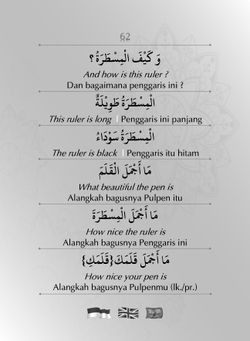 62
وَ كَيْفَ الْمِسْطَرَةُ ؟
And how is this ruler ?
Dan bagaimana penggaris ini ?
الْمِسْطَرَةُ طَوِيْلَةٌ
This ruler is long | Penggaris ini panjang
الْمِسْطَرَةُ سَوْدَاءُ
The ruler is black | Penggaris itu hitam
مَا أَجْمَلَ الْقَلَمَ
What beautiful the pen is
Alangkah bagusnya Pulpen itu
مَا أَجْمَلَ الْمِسْطَرَةَ
How nice the ruler is
Alangkah bagusnya Penggaris ini
مَا أَجْمَلَ قَلَمَكَ {قَلَمَكِ}
How nice your pen is
Alangkah bagusnya Pulpenmu (lk./pr.)